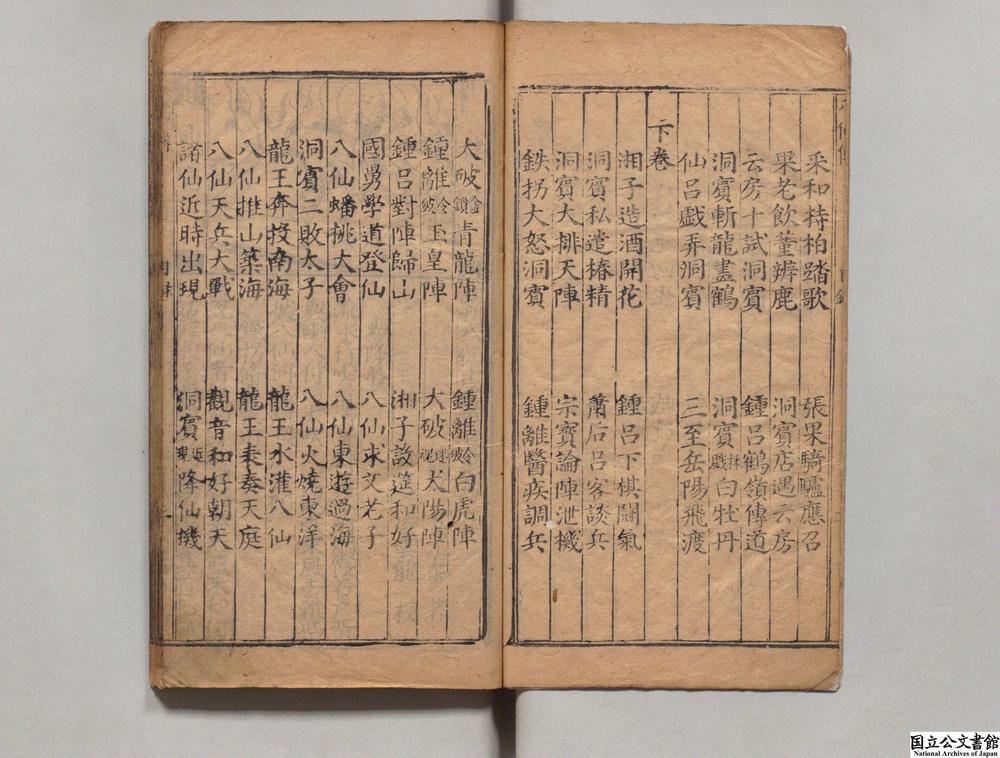 采和持柏踏歌　張果騎驢應召
果老飲菫辨鹿　洞賓店遇云房
云房十試洞賓　鍾呂鶴嶺傳道
洞賓斬龍畫鶴　洞賓戯白牡丹
仙呂戯弄洞賓　三至岳陽飛渡
下卷
湘子造酒開花　鍾呂下棋鬪氣
洞賓私遣椿精　蕭后呂客談兵
洞賓大排天陣　宗寳論陣泄機
鉄拐大怒洞賓　鍾離醫疾調兵
大破金鎖青龍陣　鍾離令破白虎陣
鍾離令破玉皇陣　大破迷魂太陽陣
鍾呂對陣歸山　湘子設筵和好
國舅學道登仙　八仙求文老子
八仙蟠桃大會　八仙東遊過海
洞賓二敗太子　八仙火燒東洋
龍王奔投南海　龍王水灌八仙
八仙推山築海　龍王表奏天庭
八仙天兵大戰　觀音和好朝天
諸仙近時出現　洞賓近現降仙機
国立公文書館
National Archives of Japan